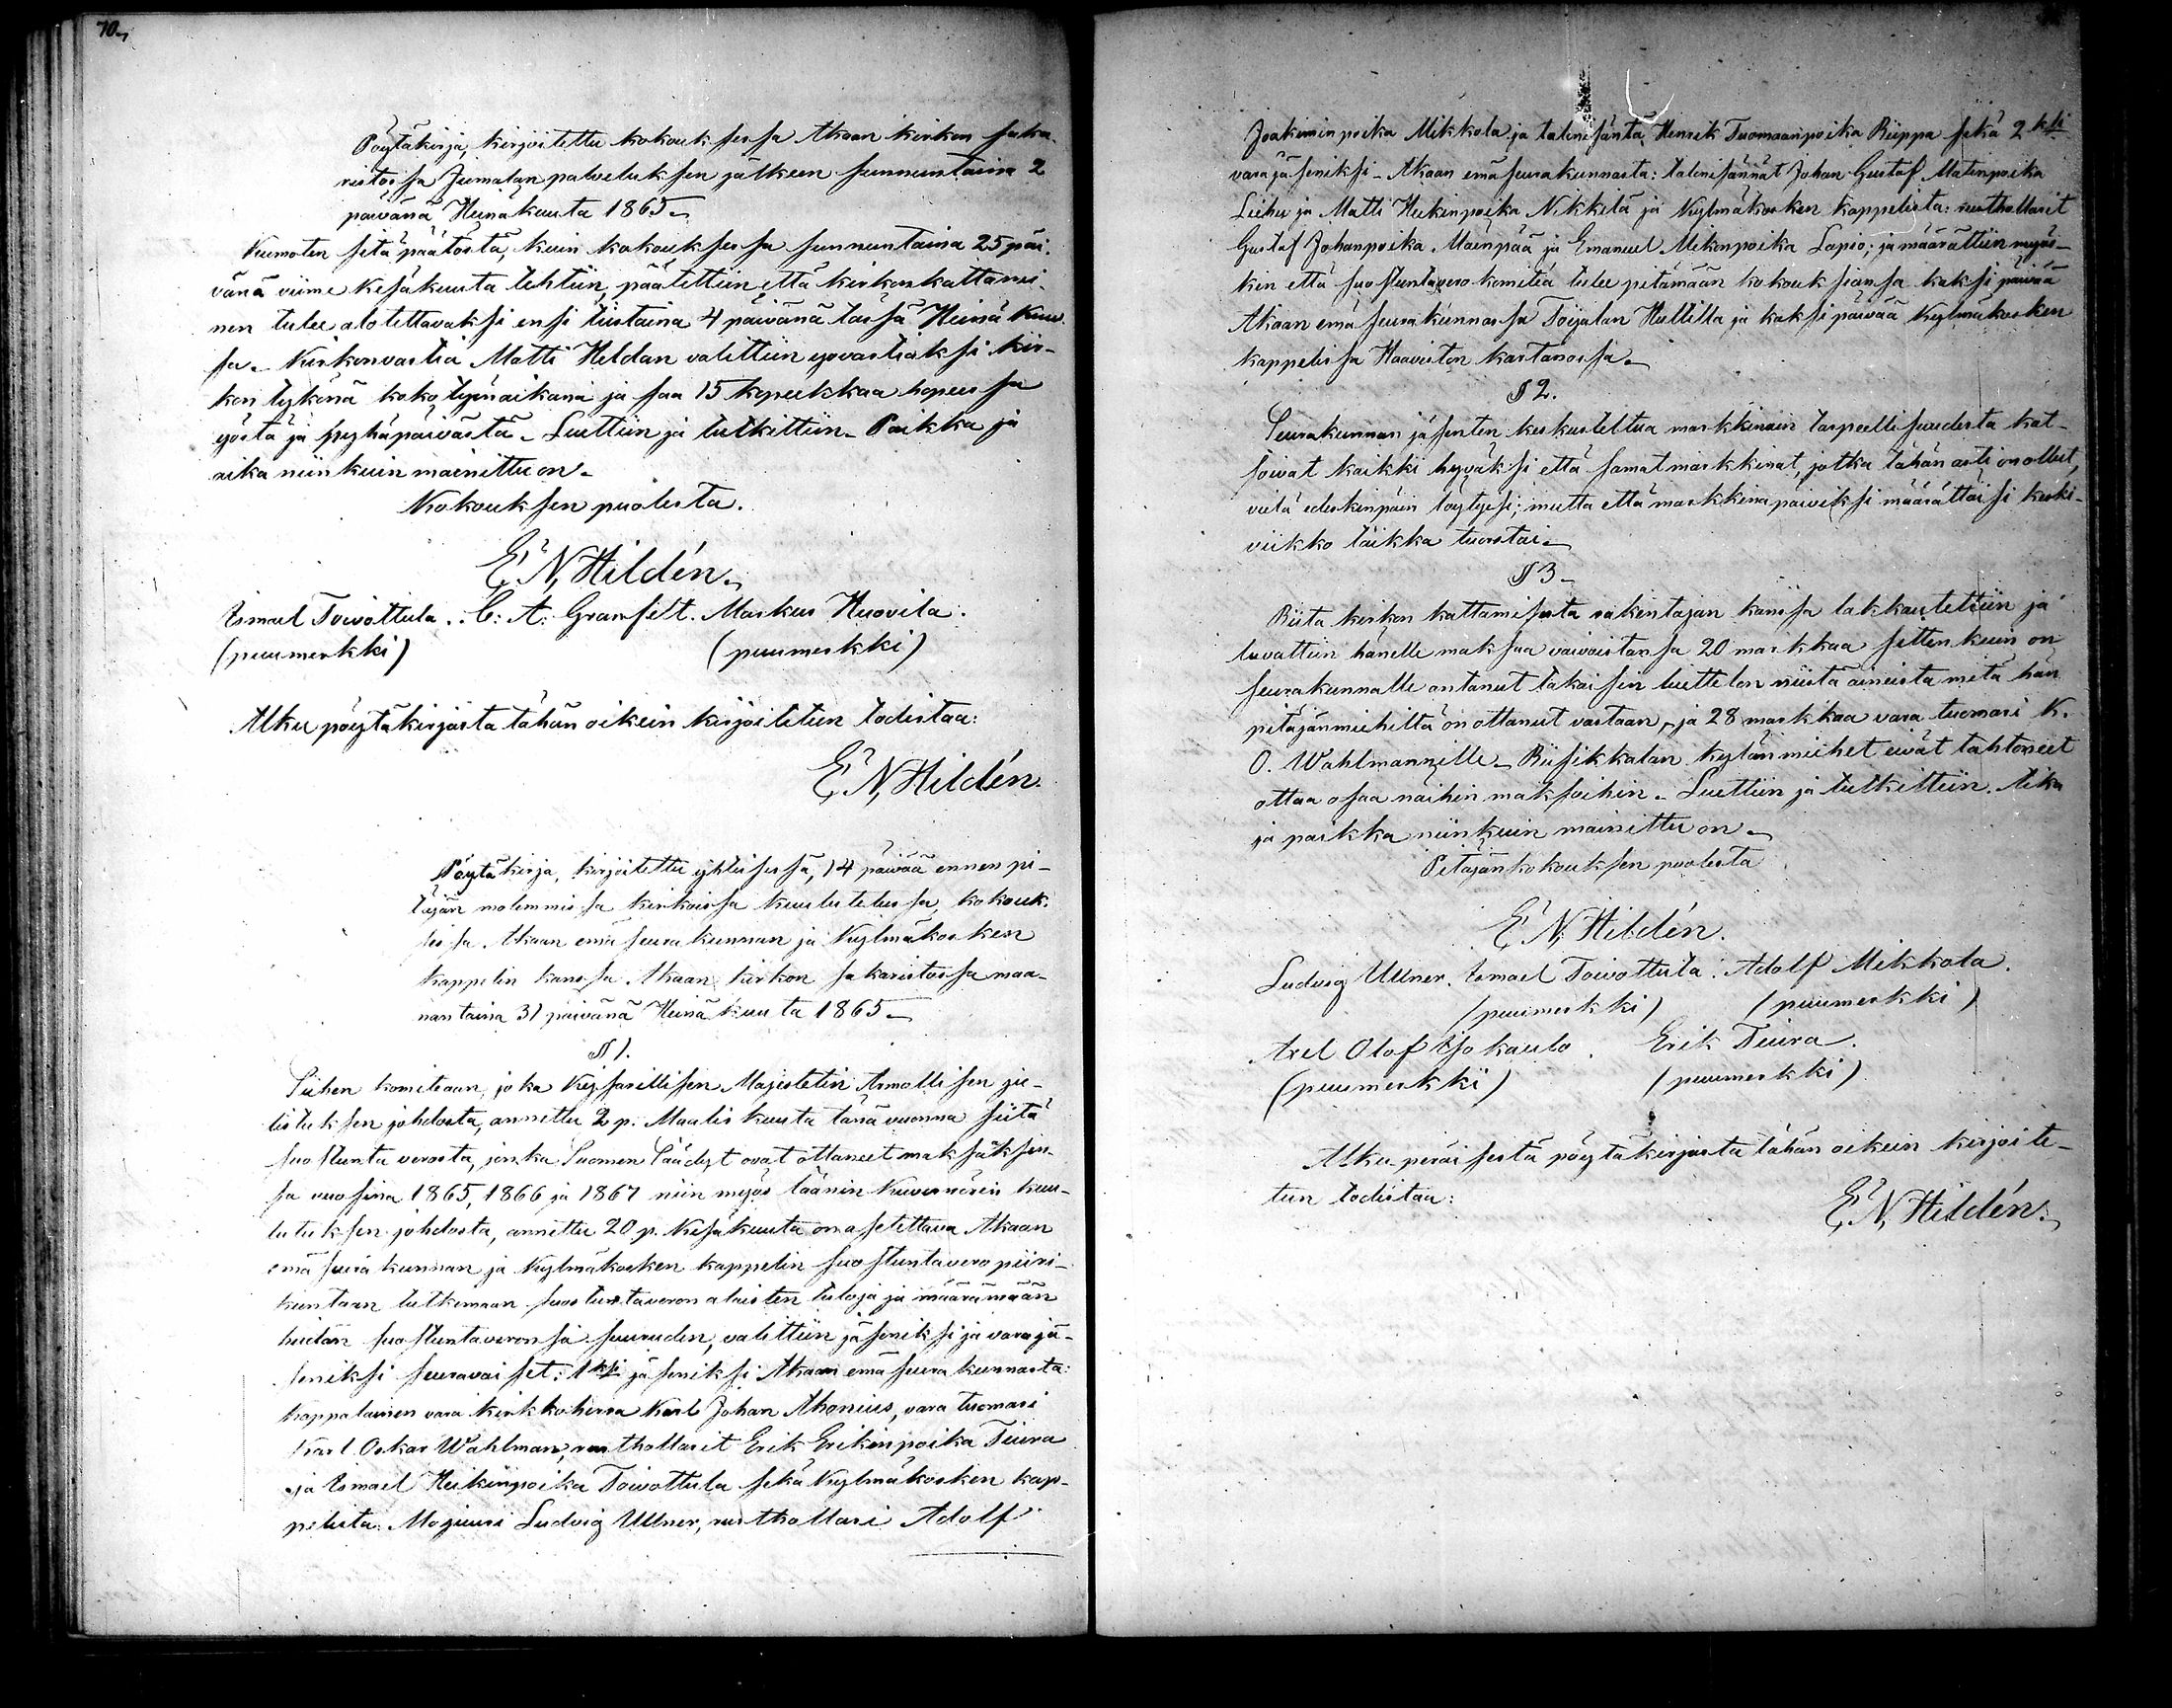 70.
Pöytäkirja, kirjoitettu kokouksessa Akaan kirkon saka-
ristossa Jumalan palveluksen jälkeen sunnuntaina 2
päivänä Heinäkuuta 1865.
Kumoten sitä päätöstä, kuin kokouksessa sunnuntaina 25 päi-
vänä viime Kesäkuuta tehtiin, päätettiin että kirkon kattami-
nen tulee alotettavaksi ensi tiistaina 4 päivänä tässä Heinä kuu-
sa. Kirkonvartia Matti Heldan valittiin yövartiaksi kir-
kon tykönä koko työn aikana ja saa 15 kopeekkaa hopeessa
yöstä ja pyhäpäivästä. Luettiin ja tutkittiin. Paikka ja
aika niinkuin mainittu on.
Kokouksen puolesta.
E. N. Hildén.
Ismael Toivottula. C: A: Granfelt. Markus Huovila.
(puumerkki) (puumerkki)
Alku pöytäkirjasta tähän oikein kirjoitetun todistaa:
E. N. Hildén.
Pöytäkirja, kirjoitettu yhteisessä, 14 päivää ennen pi-
täjän molemmissa kirkoissa kuulutetussa, kokouk-
sessa Akaan emä seurakunnan ja Kylmäkosken
kappelin kanssa Akaan kirkon sakaristossa maa-
nantaina 31 päivänä Heinäkuuta 1865.
§ 1.
Siihen komiteaan, joka Keisarillisen Majestetin Armollisen ju-
listuksen johdosta, annettu 2 p. Maaliskuuta tänä vuonna siitä
suostunta verosta, jonka Suomen Säädyt ovat ottaneet maksaaksen-
sa vuosina 1865, 1866 ja 1867 niin myös läänin Kuvernörin kuu-
lutuksen johdosta, annettu 20 p. Kesäkuuta on asetettava Akaan
emä seurakunnan ja Kylmäkosken kappelin suostuntavero piiri-
kuntaan tutkimaan suostuntaveron alaisten tuloja ja määräämään
heidän suostuntaveronsa suuruden, valittiin jäseniksi ja varajä-
seniksi seuravaiset: 1ksi jäseniksi Akaan emä seurakunnasta:
kappalainen vara kirkkoherra Karl Johan Ahonius, vara tuomari
Karl Oskar Wahlman, rusthollarit Erik Erikinpoika Tiura
ja Ismael Heikinpoika Toivottula sekä Kylmäkosken kap-
pelista: Majuuri Ludvig Ullner, rusthollari Adolf
Joakiminpoika Mikkola ja talonisäntä Henrik Tuomaanpoika Riippa sekä 2ksi
varajäseniksi - Akaan emäseurakunnasta: talonisännät Johan Gustaf Matinpoika
Liehu ja Matti Heikinpoika Nikkilä ja Kylmäkosken kappelista: rusthollarit
Gustaf Johanpoika Mäenpää ja Emanuel Mikonpoika Lapio; ja määrättiin myös-
kin että suostuntavero komitea tulee pitämään kokouksiansa kaksi päivää
Akaan emä seurakunnassa Toijalan Hullilla ja kaksi päivää Kylmäkosken
kappelissa Haaviston kartanossa.
§ 2.
Seurakunnan jäsenten keskusteltua markkinain tarpeellisuudesta kat-
soivat kaikki hyväksi että samat markkinat, jotka tähän asti on ollut,
vielä edeskinpäin löytyisi; mutta että markkinapäiviksi määrättäisi keski-
viikko taikka tuorstai.
§ 3.
Riita kirkon kattamisesta rakentajan kanssa lakkautettiin ja
luvattiin hänelle maksaa vaivoistansa 20 markkaa sitten kuin on
seurakunnalle antanut takaisin luettelon niistä aineista mitä hän
pitäjänmiehiltä on ottanut vastaan, ja 28 markkaa vara tuomari K.
O. Wahlmannille. Riisikkalan kylän miehet eivät tahtoneet
ottaa osaa näihin maksoihin. Luettiin ja tutkittiin. Aika
ja paikka niinkuin mainittu on.
Pitäjänkokouksen puolesta
E. N. Hildén.
Ludvig Ullner. Ismael Toivottula. Adolf Mikkola.
(puumerkki) (puumerkki)
Axel Olof Isokaulo. Erik Tiura.
(puumerkki) (puumerkki)
Alku-peräisestä pöytäkirjasta tähän oikein kirjoite-
tun todistaa:
E. N. Hildén.